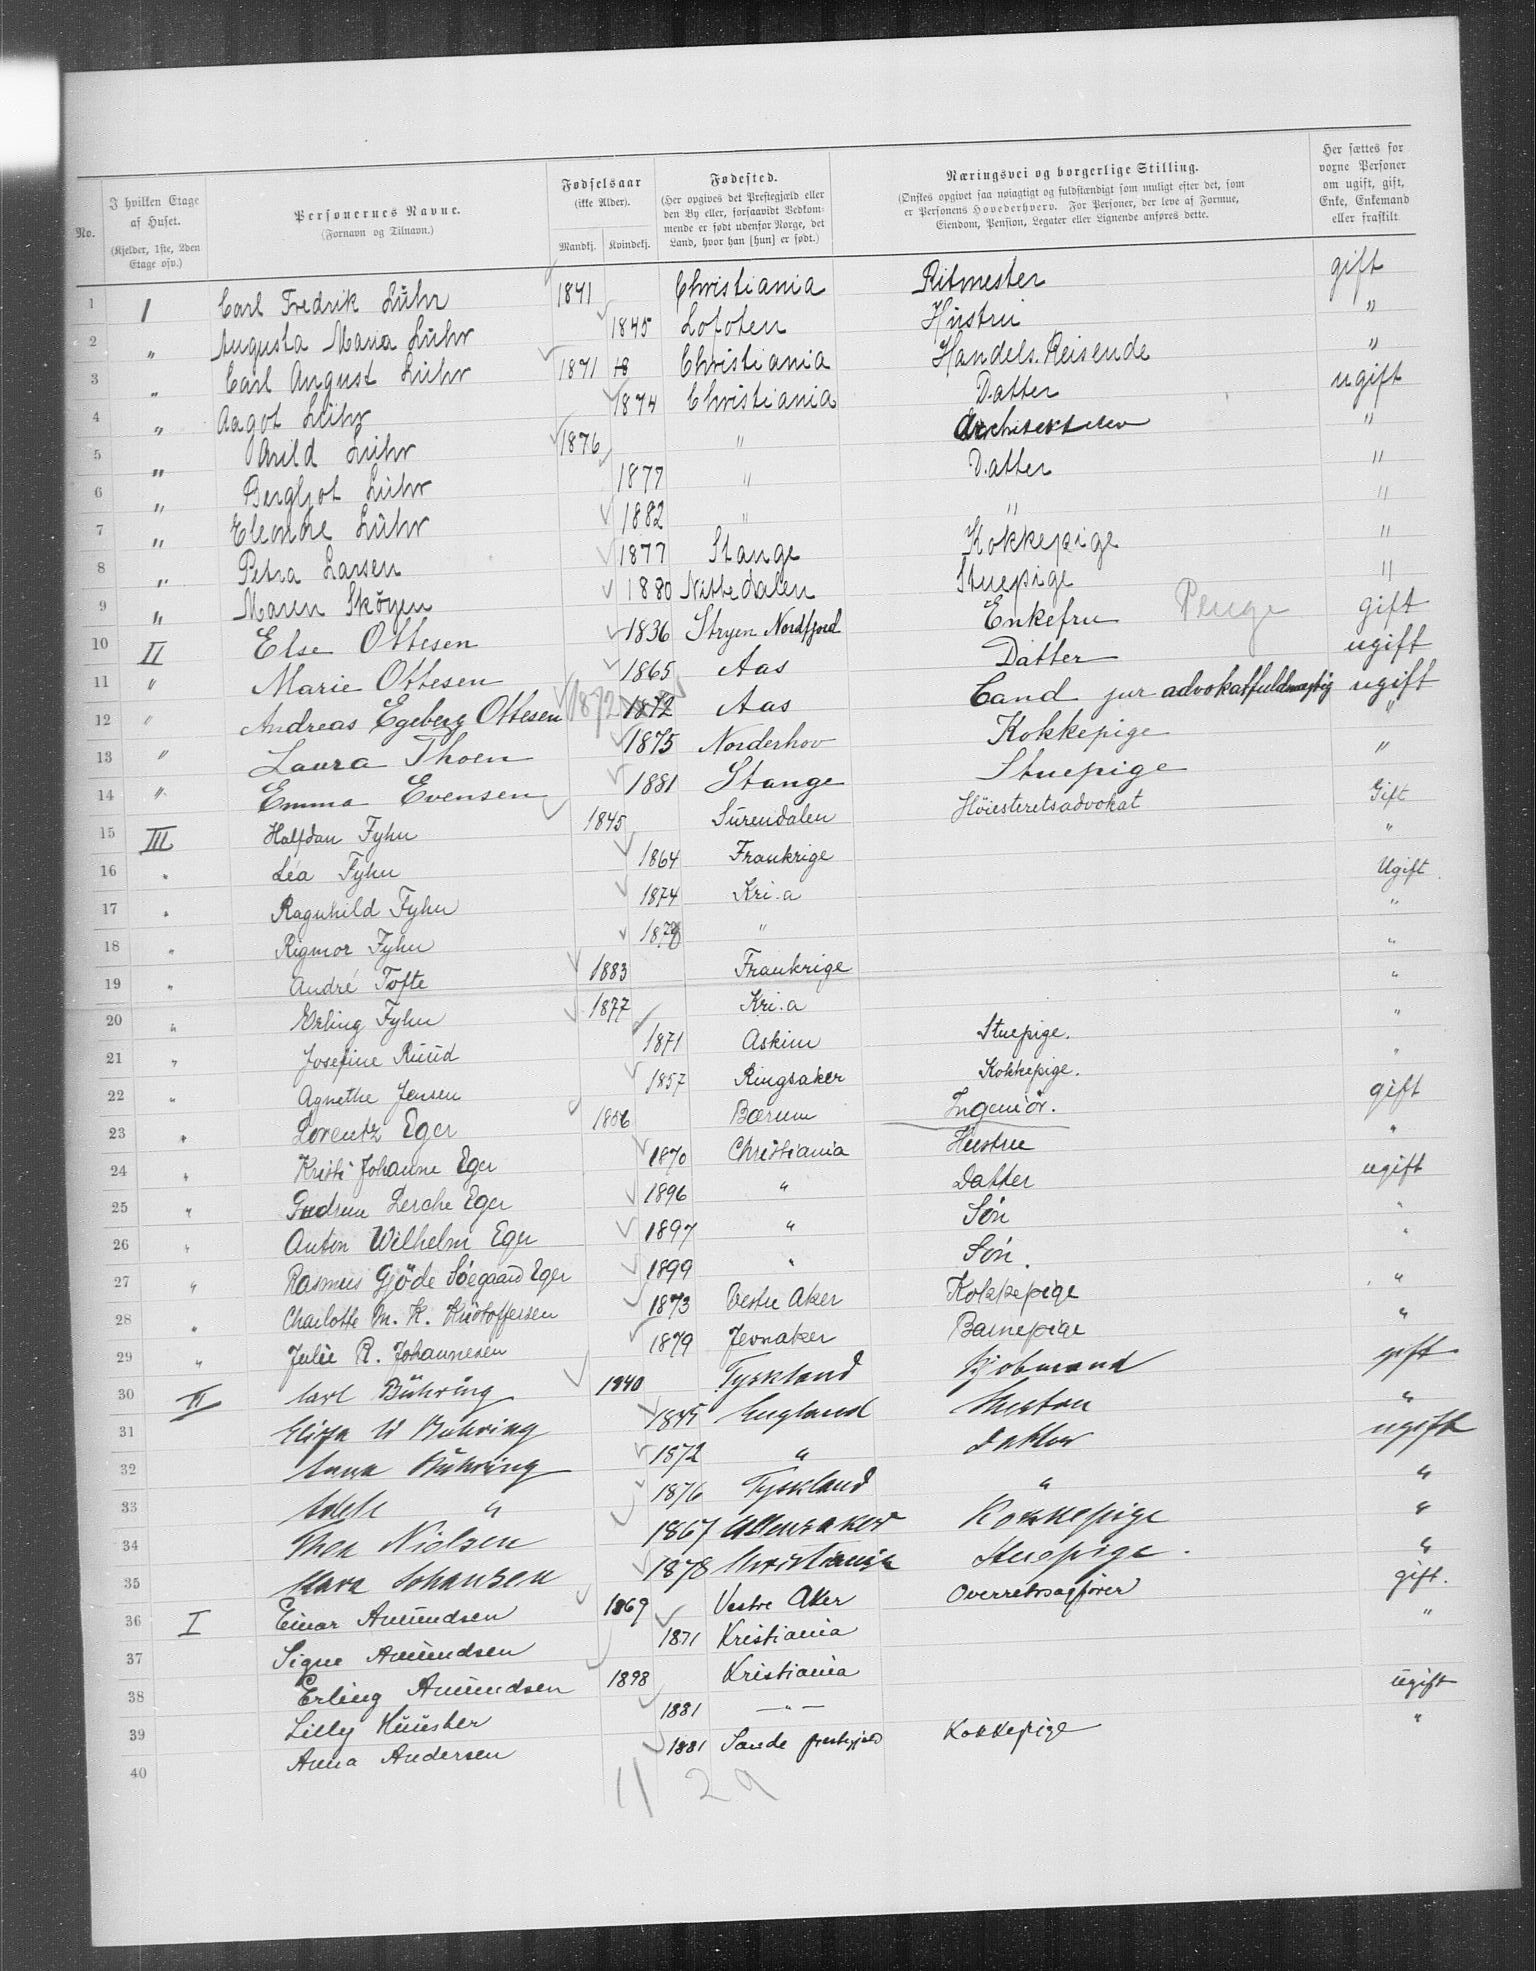 No.
I hvilken Etage af Huset.
(Kjelder, 1ste, 2den Etage osv.)
Personernes Navne.
(Fornavn og Tilnavn.)
Fødselsaar
(ikke Alder).
Mandkj. Kvindekj.
Fødested.
(Her opgives det Prestegjæld eller
den By eller, forsaavidt Vedkom-
mende er født udenfor Norge, det
Land, hvor han [hun] er født.)
Næringsvei og borgerlige Stilling.
(Ønskes opgivet saa nøiagtigt og fuldstændigt som muligt efter det, som
er Personens Hovederhverv. For Personer, der leve af Formue,
Eiendom, Pension, Legater eller Lignende anføres dette.
Her sættes for
voxne Personer
om ugift, gift,
Enke, Enkemand
eller fraskilt
1 I Carl Fredrik Lühr 1841 Christiania Ritmester gift
2 " Augusta Maria Lühr 1845 Lofoten Hustru "
3 " Carl August Lühr 1871 Christiania Handels.Reisende "
4 " Aagot Lühr 1874 Christiania Datter ugift
5 " Arild Lühr 1876 " Architektelev "
6 " Bergljot Lühr 1877 " Datter "
7 " Eleonore Lühr 1882 " " "
8 " Petra Larsen 1877 Stange Kokkepige "
9 " Maren Skøyen 1880 Nittedalen Stuepige "
10 II Else Ottesen 1836 Stryen Nordfjord Enkefru Penge gift
11 " Marie Ottesen 1865 Aas Datter ugift
12 " Andreas Egeberg Ottesen 1872 1872 Aas Cand jur advokatfuldmægtig ugift
13 " Laura Thoen 1875 Norderhov Kokkepige "
14 " Emma Evensen 1881 Stange Stuepige "
15 III Halfdan Fyhn 1845 Surendalen Høiesteretsadvokat Gift
16 " Léa Fyhn 1864 Frankrige "
17 " Ragnhild Fyhn 1874 Kri.a Ugift
18 " Rigmor Fyhn 1878 " "
19 " André Tofte 1883 Frankrige "
20 " Erling Fyhn 1877 Kri.a "
21 " Josefine Ruud 1871 Askim Stuepige. "
22 " Agnethe Jensen 1857 Ringsaker Kokkepige. "
23 " Lorentz Eger 1856 Bærum Ingeniør. gift
24 " Kristi Johanne Eger 1870 Christiania Hustru "
25 " Gudrun Lerche Eger 1896 " Datter ugift
26 " Anton Wilhelm Eger 1897 " Søn "
27 " Rasmus Gjöde Söegaard Eger 1899 " Søn. "
28 " Charlotte M. K. Kristoffersen 1873 Vestre Aker Kokkepige "
29 " Julie R. Johannesen 1879 Jevnaker Barnepige "
30 Carl Bühring 1840 Tyskland Kjøbmand gift
31 Eliza W Bühring 1845 England Hustru "
32 Anna Bühring 1872 " datter ugift
33 Adele " 1876 Tyskland " "
34 Thea Nielsen 1867 Ullensaker Kokkepige "
35 Klara Johansen 1878 Christiania Stuepige. "
36 I Einar Amundsen 1869 Vestre Aker Overretssagfører gift.
37 Signe Amundsen 1871 Kristiania "
38 Erling Amundsen 1898 Kristiania
39 Lilly Münster 1881 — " — ugift
40 Anna Andersen 1881 Sande prestegjeld Kokkepige "
11 29